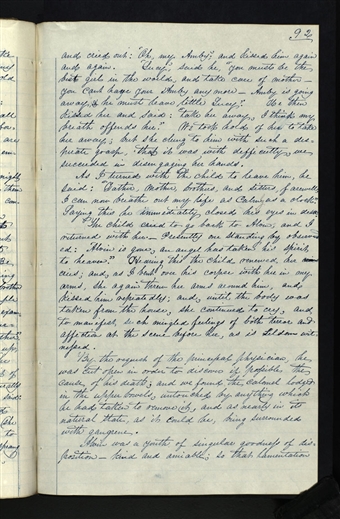 92
and cried out: Oh, my Amby! and kissed him again
and again. "Lucy," said he, "you must be the
best girl in the world, and take care of mother—
you can't have your Amby any more— Amby is going
away, & he must leave little Lucy." He then
kissed her and said: "take her away; I think my
breath offends her." We took hold of her to take
her away; but she clung to him with such a des-
perate grasp, that it was with difficulty we
succeeded in disengaging her hands.
As I turned with the child to leave him, he
said: "Father, mother, brothers, and sisters, farewell,
I can now breathe out my life as calmly as a clock."
Saying this he immediately closed his eyes in death
The child cried to go back to Alvin, and I
returned with her. Presently one standing by observ-
ed: "Alvin is gone; an angel has taken his spirit
to heaven." Hearing this the child renewed her
cries; and, as I bent over his corpse with her in my
arms, she again threw her arms around him, and
kissed him repeatedly; and, until the body was
taken from the house, she continued to cry, and
to manifest such mingled feelings of both terror and
affection at the scene before her, as is seldom wit-
nessed.
By the request of the principal physician, he
was cut open in order to discover if possible the
cause of his death; and we found the calomel lodged
in the upper bowels, untouched by anything which
he had taken to remove it, and as nearly in its
natural state, as it could be, being surrounded
with gangrene.
Alvin was a youth of singular goodness of dis-
position— kind and amiable; so that lamentation